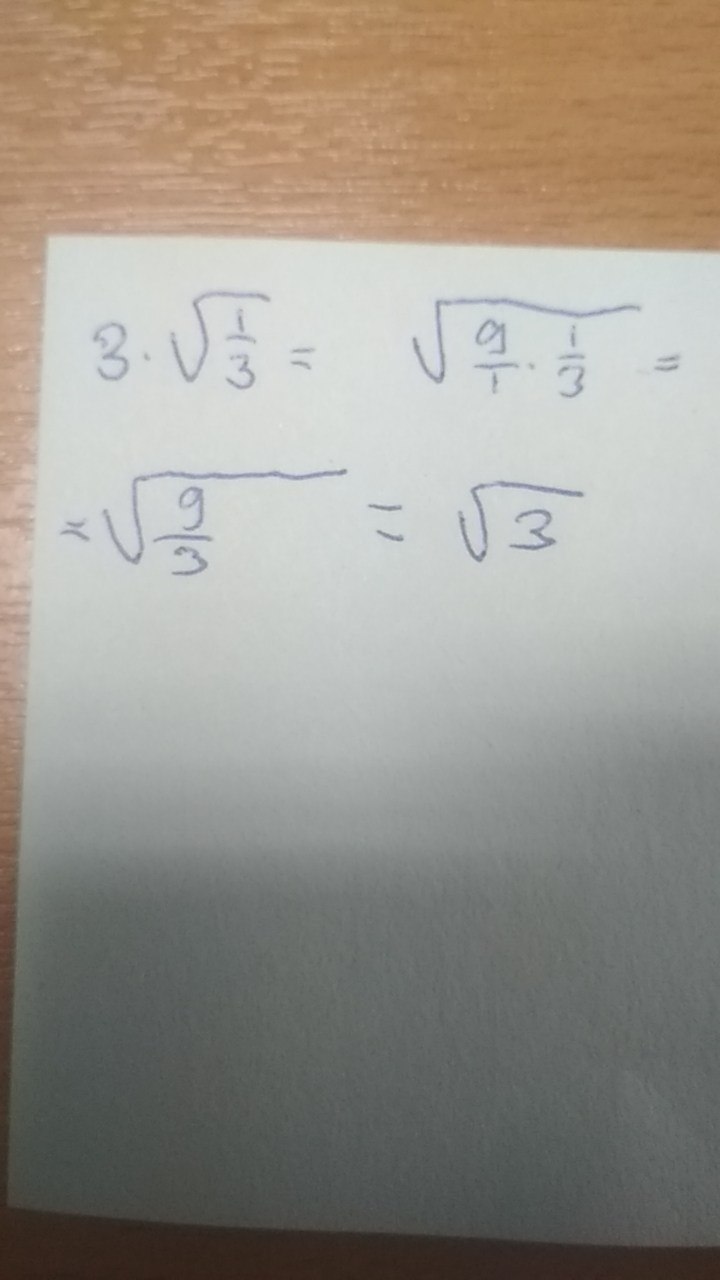 3 · √(1/3) = √(9/1 · 1/3) =
= √(9/3) = √3